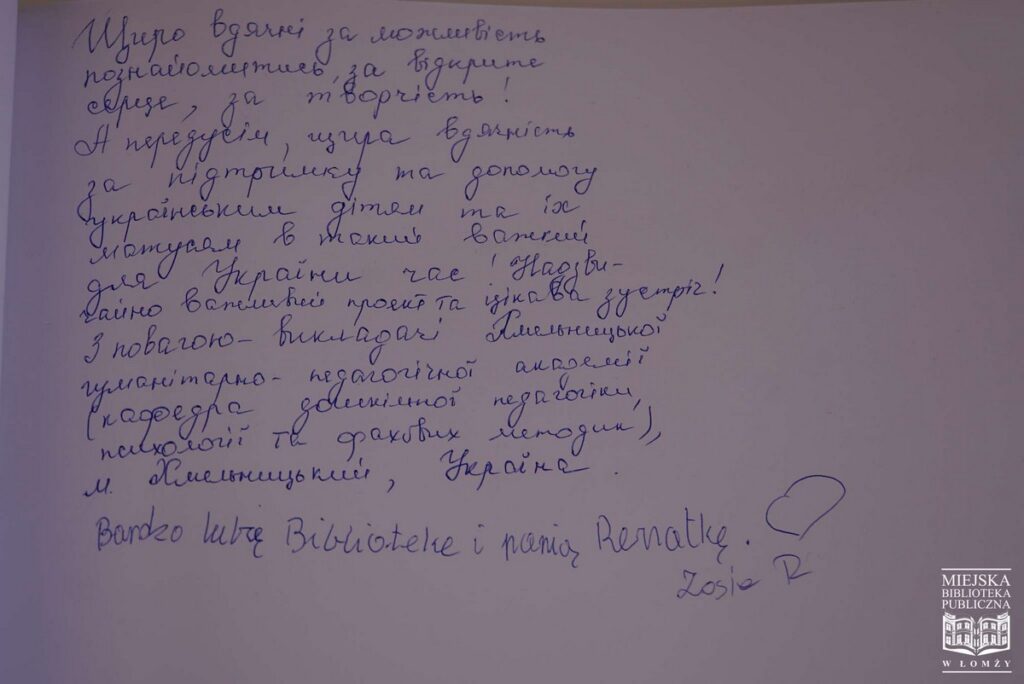 Щиро вдячні за можливість
познайомитись, за відкрите
серце, за творчість!
А передусім, щира вдячність
за підтримку та допомогу
українським дітям та їх
матусям в такий важкий
для України час! Надзви-
чайно важливий проєкт та цікава зустріч!
З повагою - викладачі Хмельницької
гуманітарно-педагогічної академії
(кафедра дошкільної педагогіки,
психології та фахових методик),
м. Хмельницький, Україна.
Bardzo lubię Biblioteke i panią Renatkę.
Zosia R
MIEJSKA
BIBLIOTEKA
PUBLICZNA
W ŁOMŻY